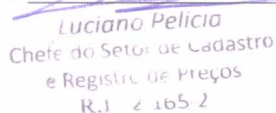 Luciano Pelicia
Chefe do Setor de Cadastro
e Registro de Preços
R.I 2 165-2